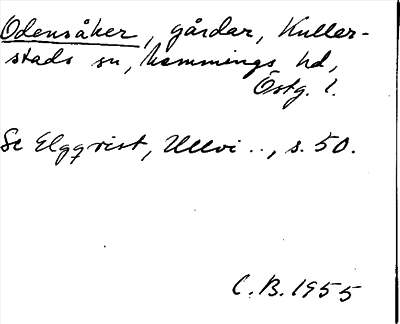 Odensåker, gårdar, Kuller-
stads sn, Memmings hd,
Östg. l.
Se Elgqvist, Ullvi .., s. 50.
C.B. 1955